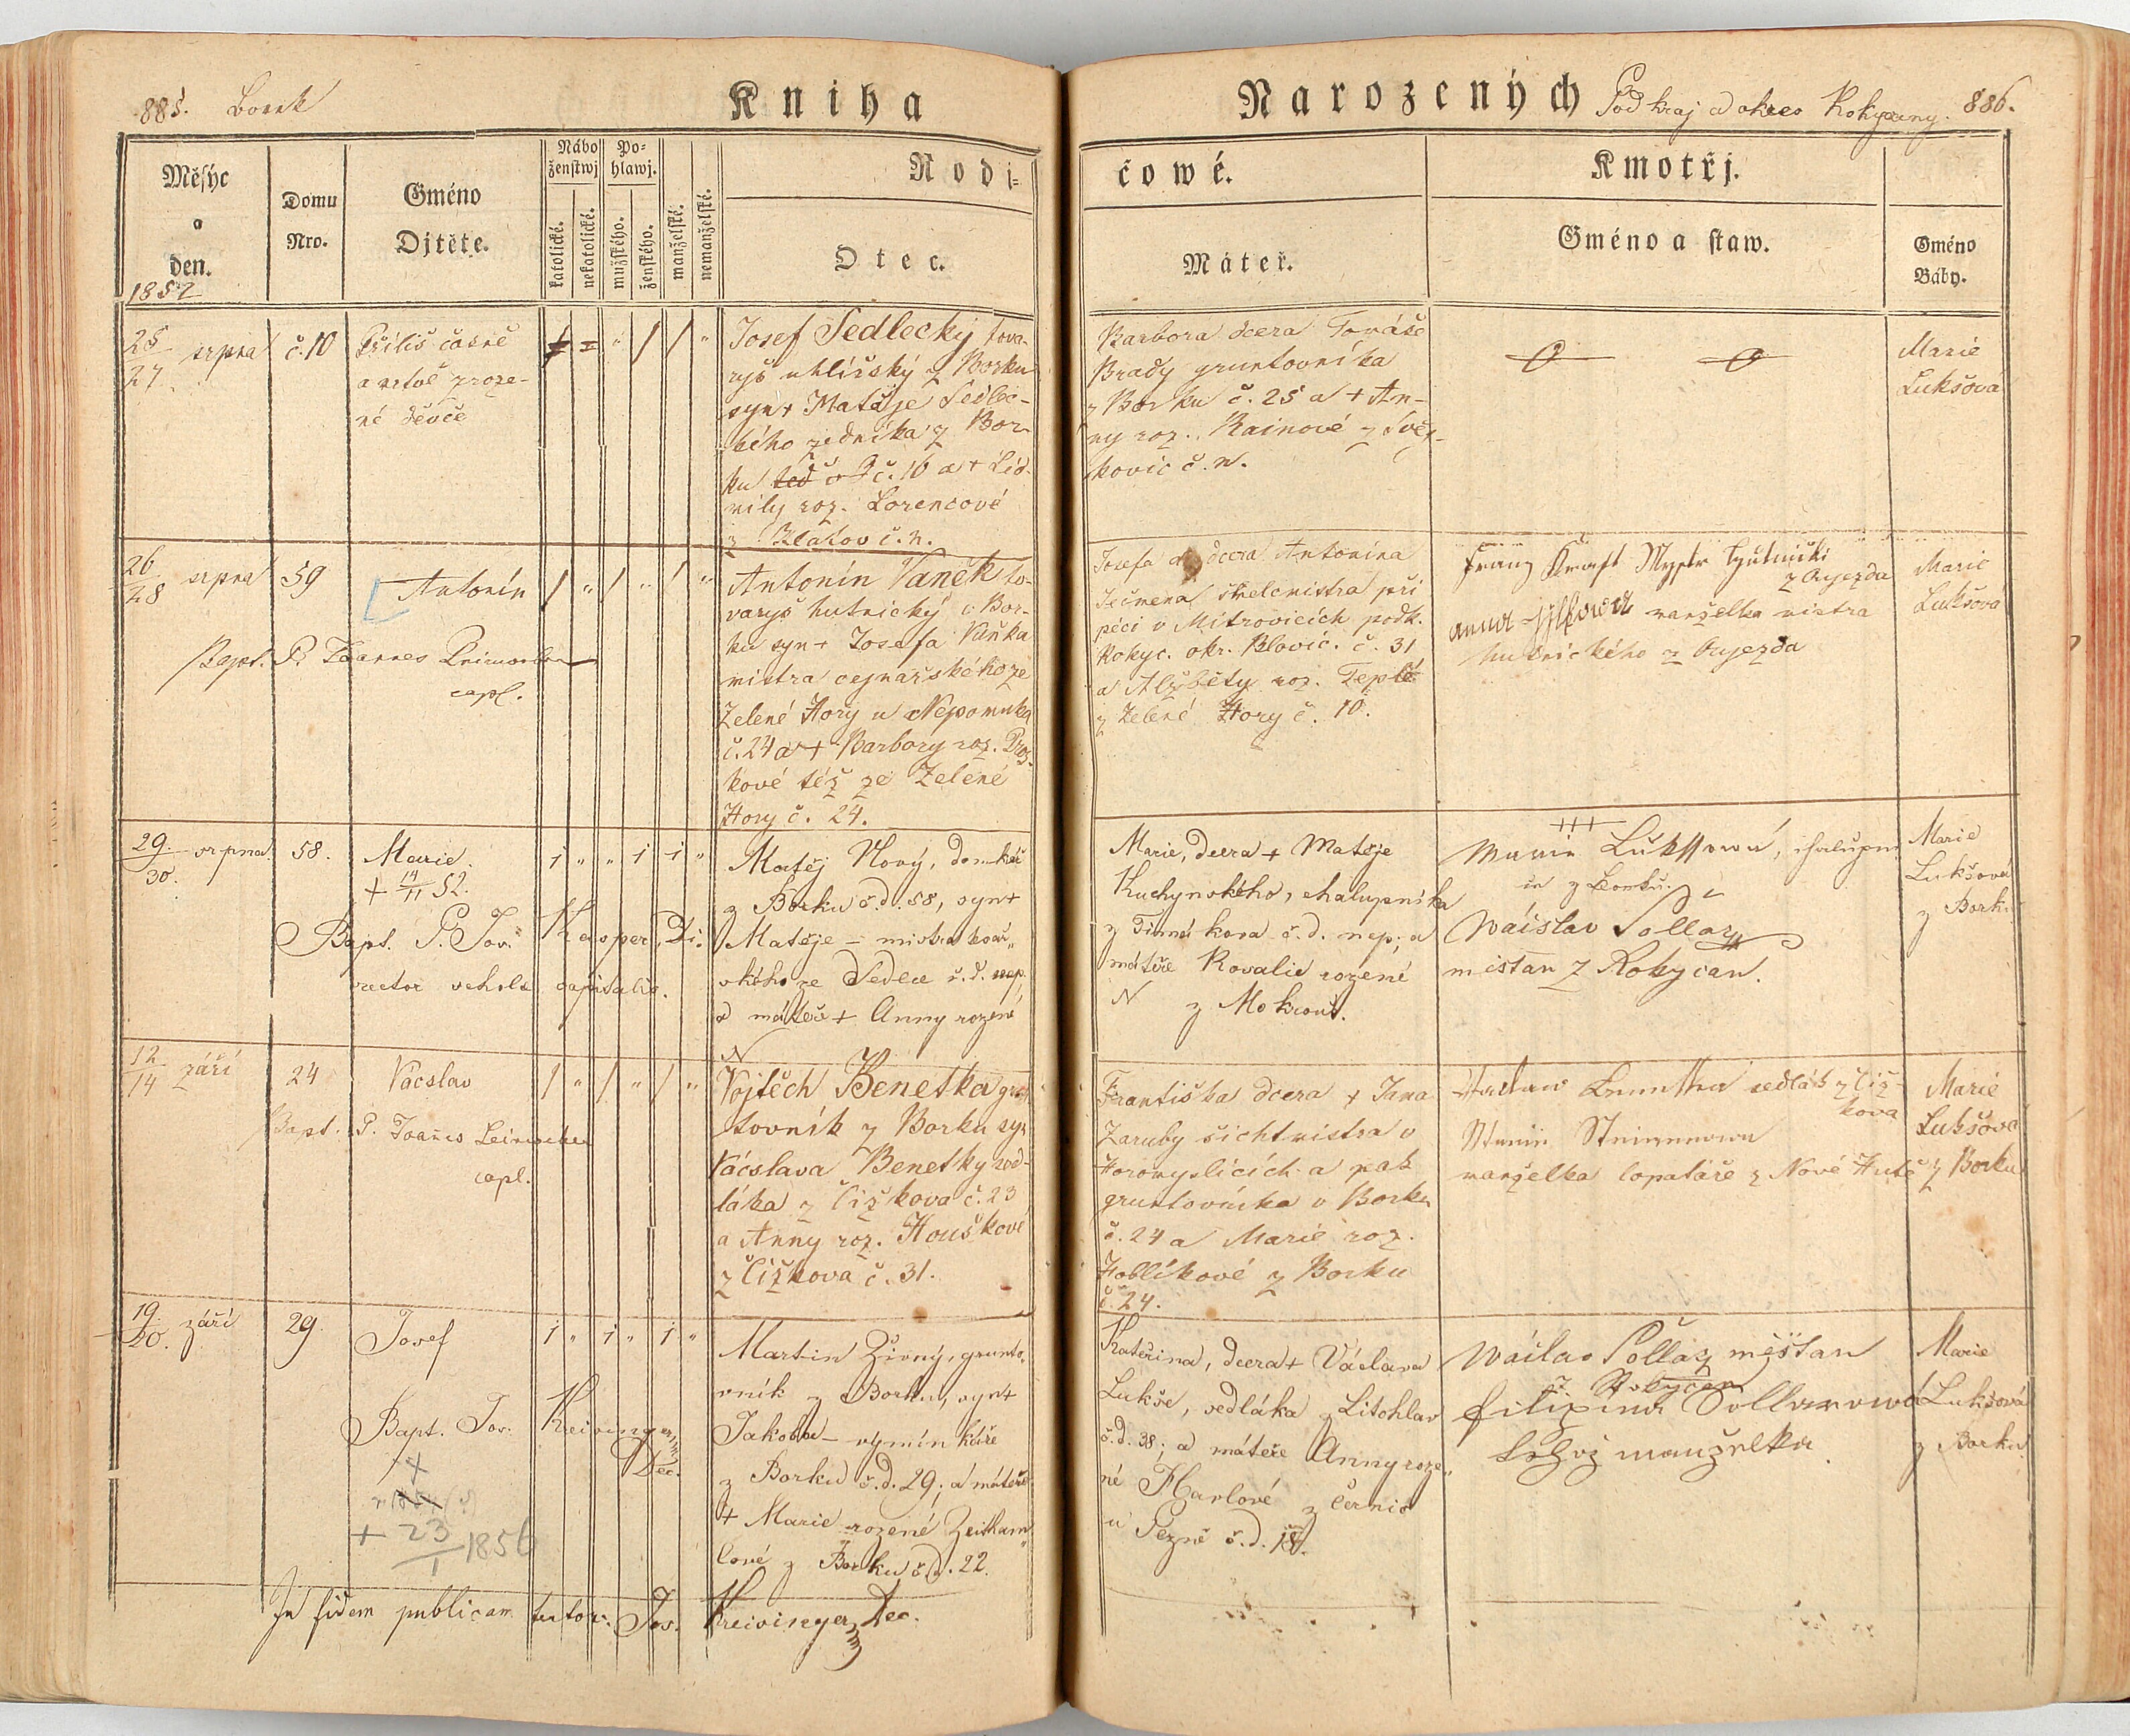 885. Borek
Kniha
Narozených
Podkraj a okres Rokycany. 886.
Měsýc
a
den.
1852
Domu
Nro.
Gméno
Djtěte.
Nábo
ženstwj
katolické.
nekatolické.
Po=
hlawj.
mužského.
ženského.
manželské.
nemanželské.
Rodi=
čowé.
Otec.
Máteř.
Kmotřj.
Gméno a staw.
Gméno
Báby.
25
27
srpna
č. 10
Příliš časně
a mrtvě zroze-
né děvče
Josef Sedlecký tova-
ryš uhlířský z Borku
syn + Matěje Sedlec-
kého zedníka z Bor-
ku č. 16 a + Lid-
mily roz. Lorencové
z č. n.
Barbora dcera Tomáše
Brady gruntovníka
z Borku č. 25 a + An-
ny roz. Rainové z
kovic č. n.
Marie
Lukšová
26
28
srpna
59
Antonín
/ " / " / "
Bapt. P. Joannes
capl.
Antonín Vaněk to-
varyš hutnický v Bor-
ku syn + Josefa Vaňka
mistra cejnařského ze
Zelené Hory u Nepomuka
č. 24 a + Barbory roz.
kové též ze Zelené
Hory č. 24.
Josefa dcera Antonína
Ječmena škelmistra při
péci v Mitrovicích podk.
Rokyc. okr. Blovic. č. 31
a Alžběty roz. Teplé
z Zelené Hory č. 10.
Franz Kraft Mystr hutnicki
z Aujezda
manželka mistra
hutnického z Aujezda
Marie
Lukšová
29.
30.
srpna.
58.
Marie.
+ 14/11 52.
1 " " 1 1 "
Bapt. P. Jos. Kasper, Di-
rector scholae capitalis.
Matěj Nový, domkář
z Borku č.d. 58, syn +
Matěje – mistra kovář„
ského ze Sedlce č.d. nep.
a máteře + Anny rozené
N
Marie, dcera + Matěje
Kuchynského, chalupníka
z Timákova č.d. nep; a
máteře Rosalie rozené
N z Mokrouš.
+++
Marie Lukssowá, chalupni
ce z Borku.
Wáislav Pollaz
mistan z Rokycan.
Marie
Lukšová
z Borku
12
14
září
24
Vácslav
/ " / " / "
Bapt. P. Joannes
capl.
Vojtěch Benetka grun
tovník z Borku syn
Vácslava Benetky sed-
láka z Čižkova č. 23
a Anny roz. Houškové
z Čížkova č. 31.
Františka dcera + Jana
Zaruby šichtmistra v
Horomyslicích a pak
gruntovníka v Borku
č. 24 a Marie roz.
Hoblíkové z Borku
č. 24.
sedlák z Čiž-
kova
manželka lopatáře z Nové Hutě
Marie
Lukšová
z Borku
19.
20.
září
29.
Josef
1 " 1 " 1 "
Bapt. Jos. Kreisinger
Dec.
+
+ 23/1 1856
Martin Živný, grunto„
vník z Borku, syn +
Jakoba – výminkáře
z Borku č.d. 29; a máteře
+ Marie rozené Zeitham„
lové z Borku č.d. 22.
Kateřina, dcera + Václava
Lukše, sedláka z Litohlav
č.d. 38; a máteře Anny roze„
né Harlové z Černic
u Plzně č.d. 18.
Wáclav Pollaz měšťan
z Rokycan
Filipina Pollarowá
manželka
Marie
Lukšová
z Borku
In fidem publicam testor. Jos. Kreisinger, Dec.